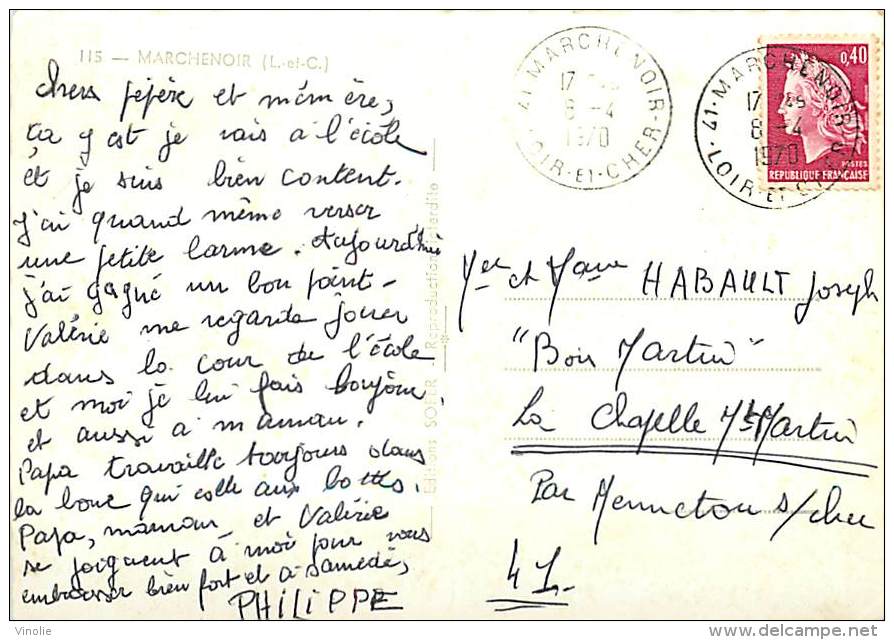 115 — MARCHENOIR (L.-et-C.)
chers pépère et mémère,
ça y est je vais à l'école
et je suis bien content.
J'ai quand même verser
une petite larme. Aujourd'hui
j'ai gagné un bon point.
Valérie me regarde jouer
dans la cour de l'école
et moi je lui fais bonjour
et aussi à maman.
Papa travaille toujours dans
la boue qui colle aux bottes.
Papa, maman et Valérie
se joignent à moi pour vous
embrasser bien fort et à samedi,
PHILIPPE
Editions SOFER - Reproduction interdite
41-MARCHENOIR
17
8 -4
1970
LOIR-ET-CHER
41-MARCHENOIR
17
8 -4
1970
LOIR-ET-CHER
0,40
POSTES
REPUBLIQUE FRANÇAISE
et Mame HABAULT Joseph
"Bois Martin"
La Chapelle Mt Martin
Par Mennetou s/cher
41-
Vinolie
delcampe.net